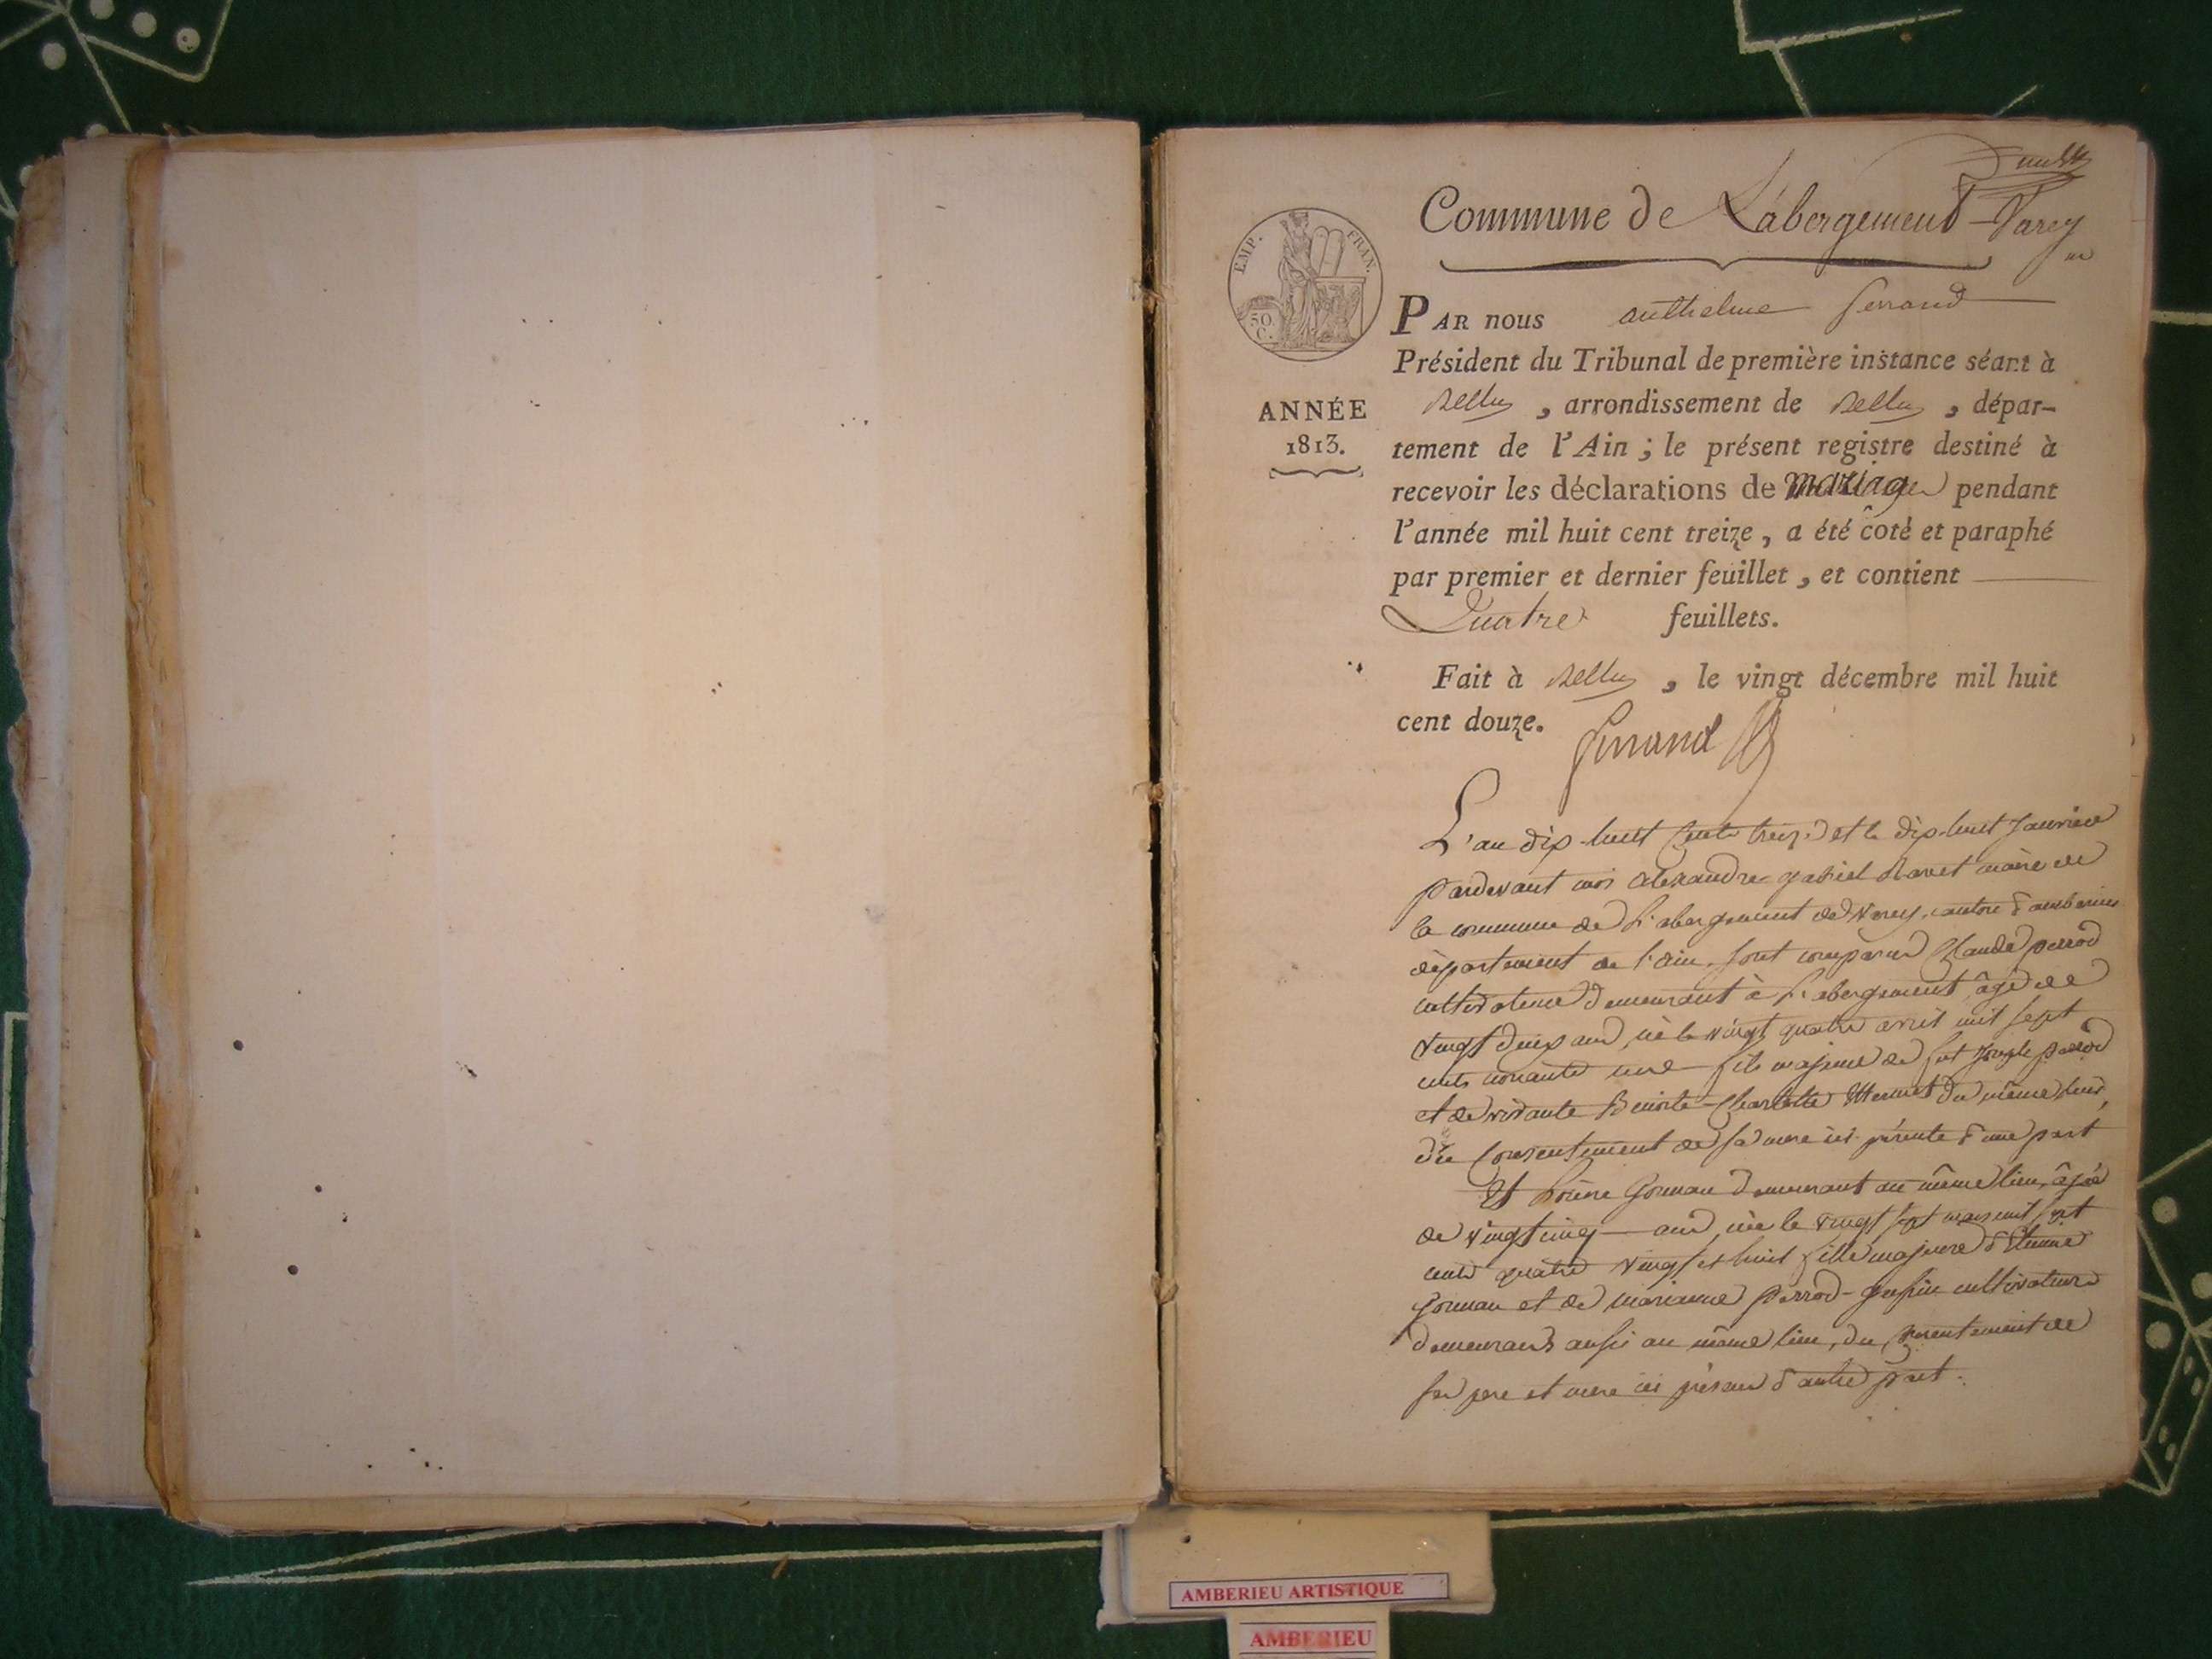 Commune de L'abergement-Varey
EMP. FRAN.
50 C.
PAR nous anthelme ferrand
Président du Tribunal de première instance séant à
Belley, arrondissement de Belley, dépar-
ANNÉE
1813.
tement de l'Ain ; le présent registre destiné à
recevoir les déclarations de mariage pendant
l'année mil huit cent treize, a été coté et paraphé
par premier et dernier feuillet, et contient
Quatre feuillets.
Fait à Belley, le vingt décembre mil huit
cent douze.
ferrand
L'an dix-huit cent treize et le dix-huit Janvier
pardevant moi alexandre gabriel maire de
la commune de L'abergement de Varey, canton d'amberieu
département de l'ain, sont comparus Claude perrod
cultivateur demeurant à L'abergement, âgé de
vingt deux ans, né le vingt quatre avril mil sept
cents nonante un fils majeur de fut Joseph perrod
et de vivante Benoite-Charlotte du même lieu,
du Consentement de sa mere ici présente d'une part
Et demeurant au même lieu, âgée
de vingt cinq ans, née le vingt sept mars mil sept
cents quatre vingt et huit fille majeure d'Etienne
et de marianne perrod cultivateurs
demeurants aussi au même lieu, du consentement de
ses pere et mere ici présens d'autre part.
AMBERIEU ARTISTIQUE
AMBERIEU